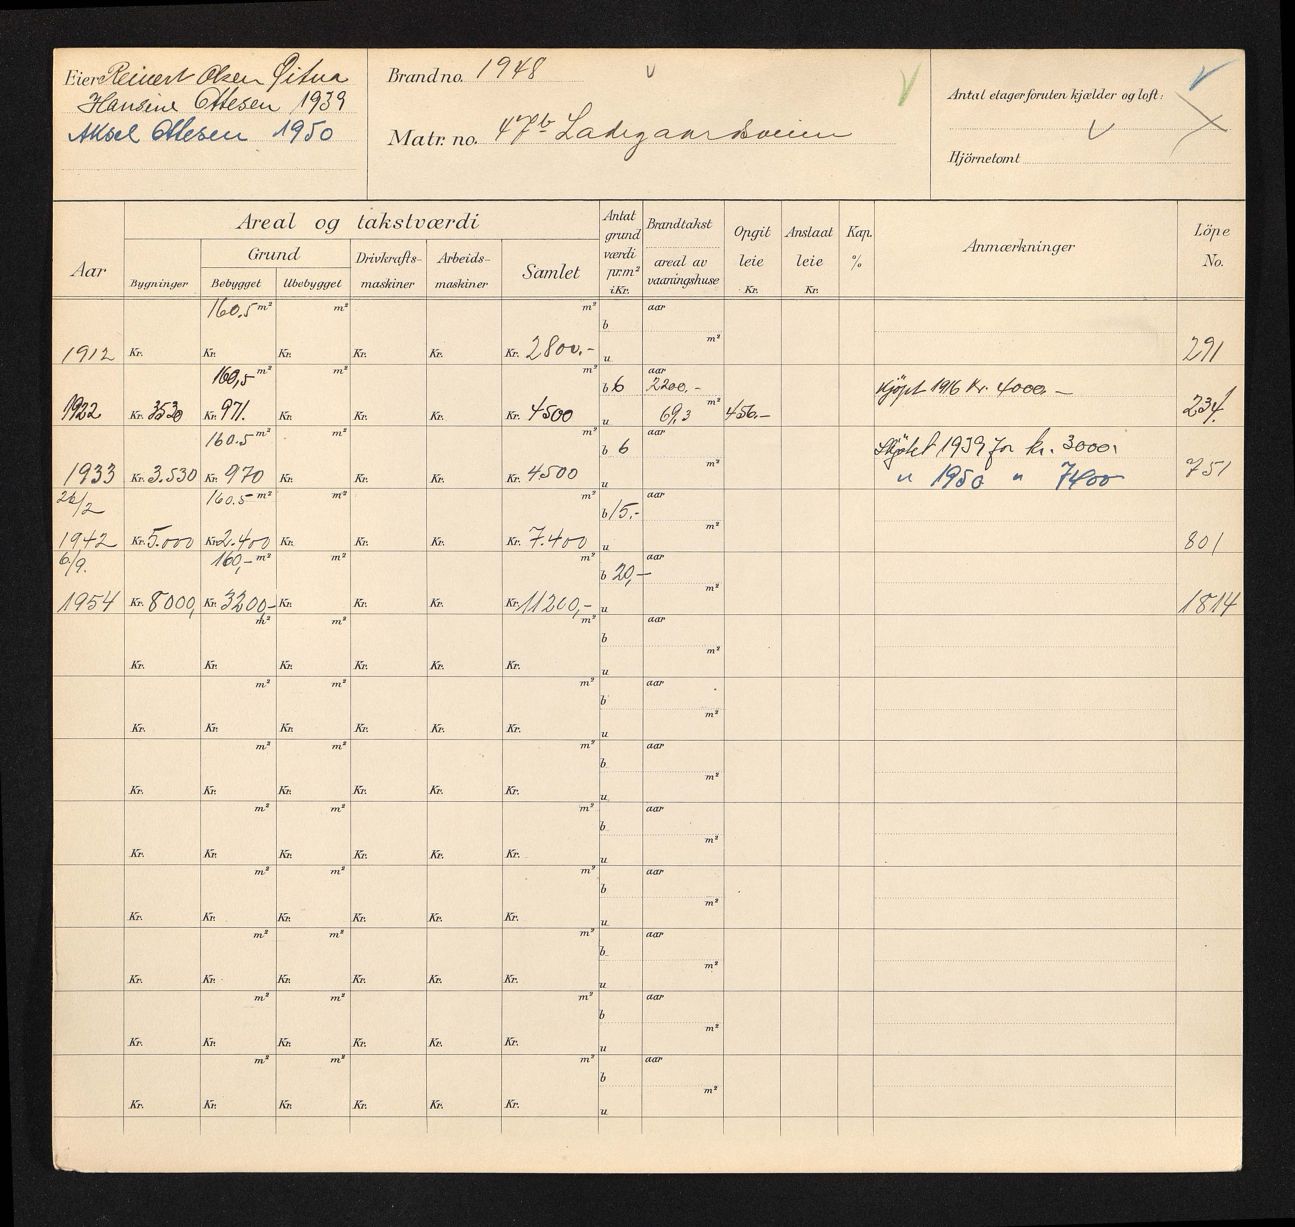 Eier Reinert Olsen
Hansine Ottesen 1939
Aksel Ottesen 1950
Brand no. 1948
Matr. no. 47b Ladegaardsveien
Antal etager foruten kjælder og loft:
Hjörnetomt
Aar
Areal og takstværdi
Grund
Bygninger
Bebygget
Ubebygget
Drivkrafts-
maskiner
Arbeids-
maskiner
Samlet
Antal
grund
værdi
pr.m²
i Kr.
Brandtakst
areal av
vaaningshuse
Opgit
leie
Kr.
Anslaat
leie
Kr.
Kap.
%
Anmærkninger
Löpe
No.
160.5 m² m² m² b aar
1912 Kr. Kr. Kr. Kr. Kr. Kr. 2800.- u m² 291
160,5 m² m² m² b 6 aar 2200.- Kjöpt 1916 Kr. 4000.-
1922 Kr. 3530 Kr. 971. Kr. Kr. Kr. Kr. 4500 u 69,3 m² 456.- 234.
160.5 m² m² m² b 6 aar Skjötet 1939 for kr. 3000.
1933 Kr. 3.530 Kr. 970 Kr. Kr. Kr. Kr. 4500 u m² " 1950 " 7400 751
26/2 160.5 m² m² m² b 15.- aar
1942 Kr. 5.000 Kr. 2.400 Kr. Kr. Kr. Kr. 7.400 u m² 801
6/9. 160,- m² m² m² b 20,- aar
1954 Kr. 8000, Kr. 3200,- Kr. Kr. Kr. Kr. 11200,- u m² 1814
m² m² m² b aar
Kr. Kr. Kr. Kr. Kr. Kr. u m²
m² m² m² b aar
Kr. Kr. Kr. Kr. Kr. Kr. u m²
m² m² m² b aar
Kr. Kr. Kr. Kr. Kr. Kr. u m²
m² m² m² b aar
Kr. Kr. Kr. Kr. Kr. Kr. u m²
m² m² m² b aar
Kr. Kr. Kr. Kr. Kr. Kr. u m²
m² m² m² b aar
Kr. Kr. Kr. Kr. Kr. Kr. u m²
m² m² m² b aar
Kr. Kr. Kr. Kr. Kr. Kr. u m²
m² m² m² b aar
Kr. Kr. Kr. Kr. Kr. Kr. u m²